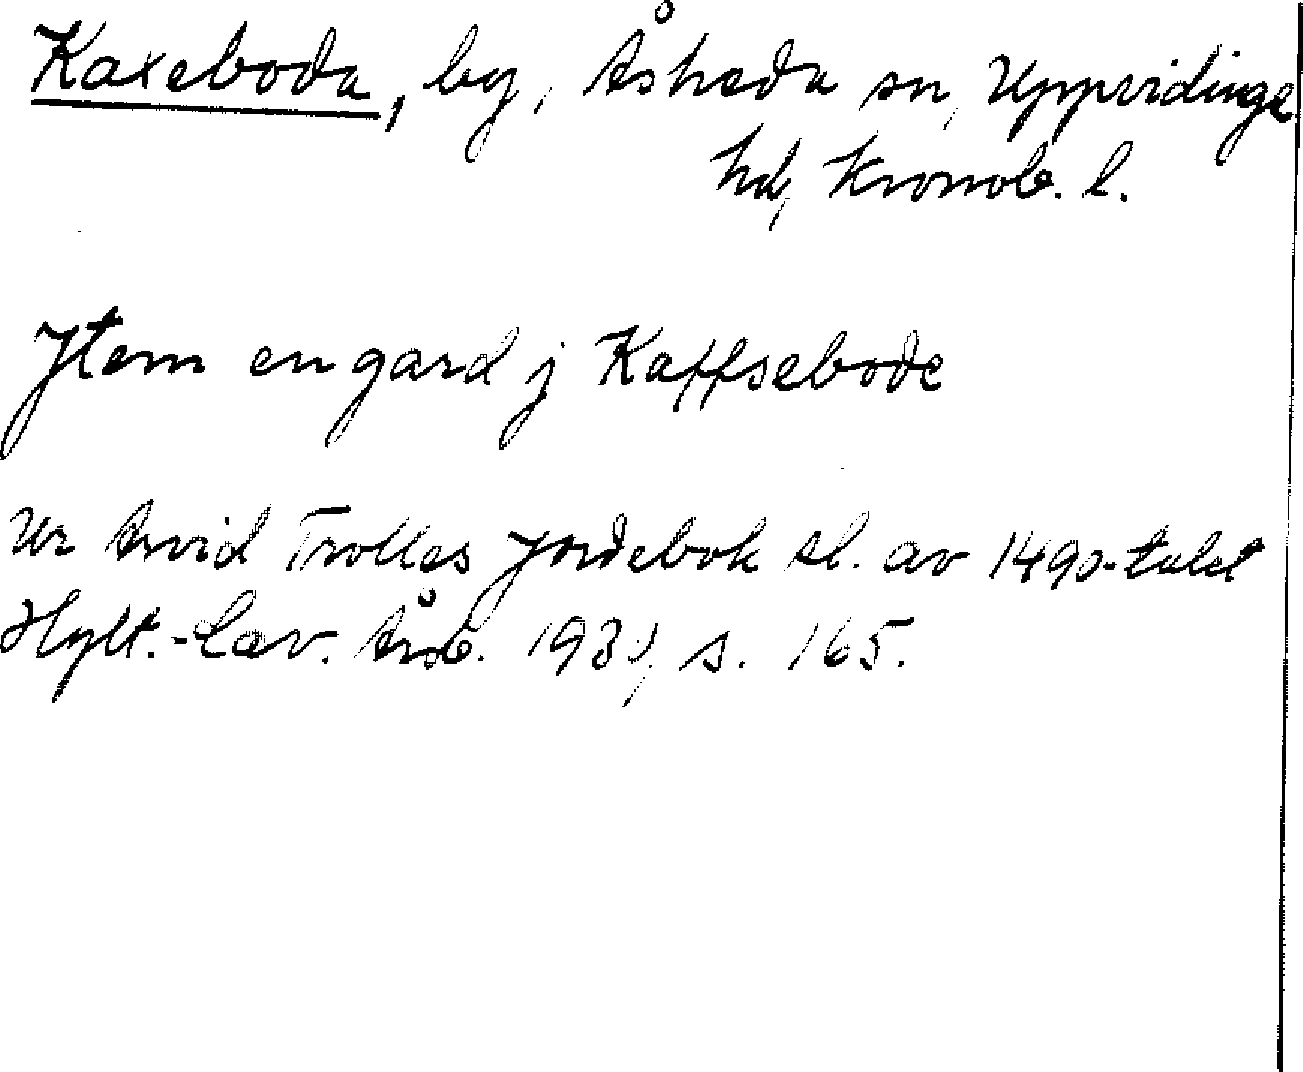 Kaxeboda, by, Åsheda sn, Uppvidinge
hd, Kronob. l.
Jtem en gard j Kaffsebode
Ur Arvid Trolles jordebok sl. av 1490-talet
Hylt.-Cav. Årsb. s. 165.